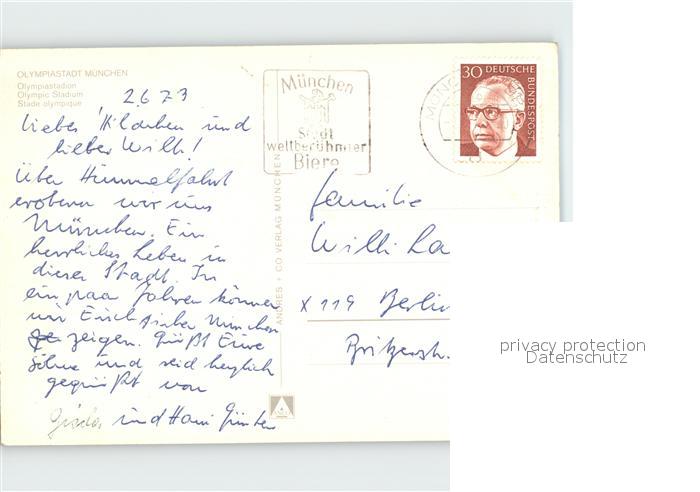 OLYMPIASTADT MÜNCHEN
Olympiastadion
Olympic Stadium
Stade olympique
2.6.73
Liebes Hildchen und
lieber Willi!
Über Himmelfahrt
erobern wir uns
München. Ein
herrliches Leben in
dieser Stadt. In
ein paar Jahren können
wir Euch sicher München
zeigen. Grüßt Eure
Söhne und seid herzlich
gegrüßt von
Gisela und Hans Günter
ANDRES + CO VERLAG MÜNCHEN
München
Stadt
weltberühmter
Biere
30 DEUTSCHE
BUNDESPOST
Familie
Willi La
X 119 Berlin
privacy protection
Datenschutz